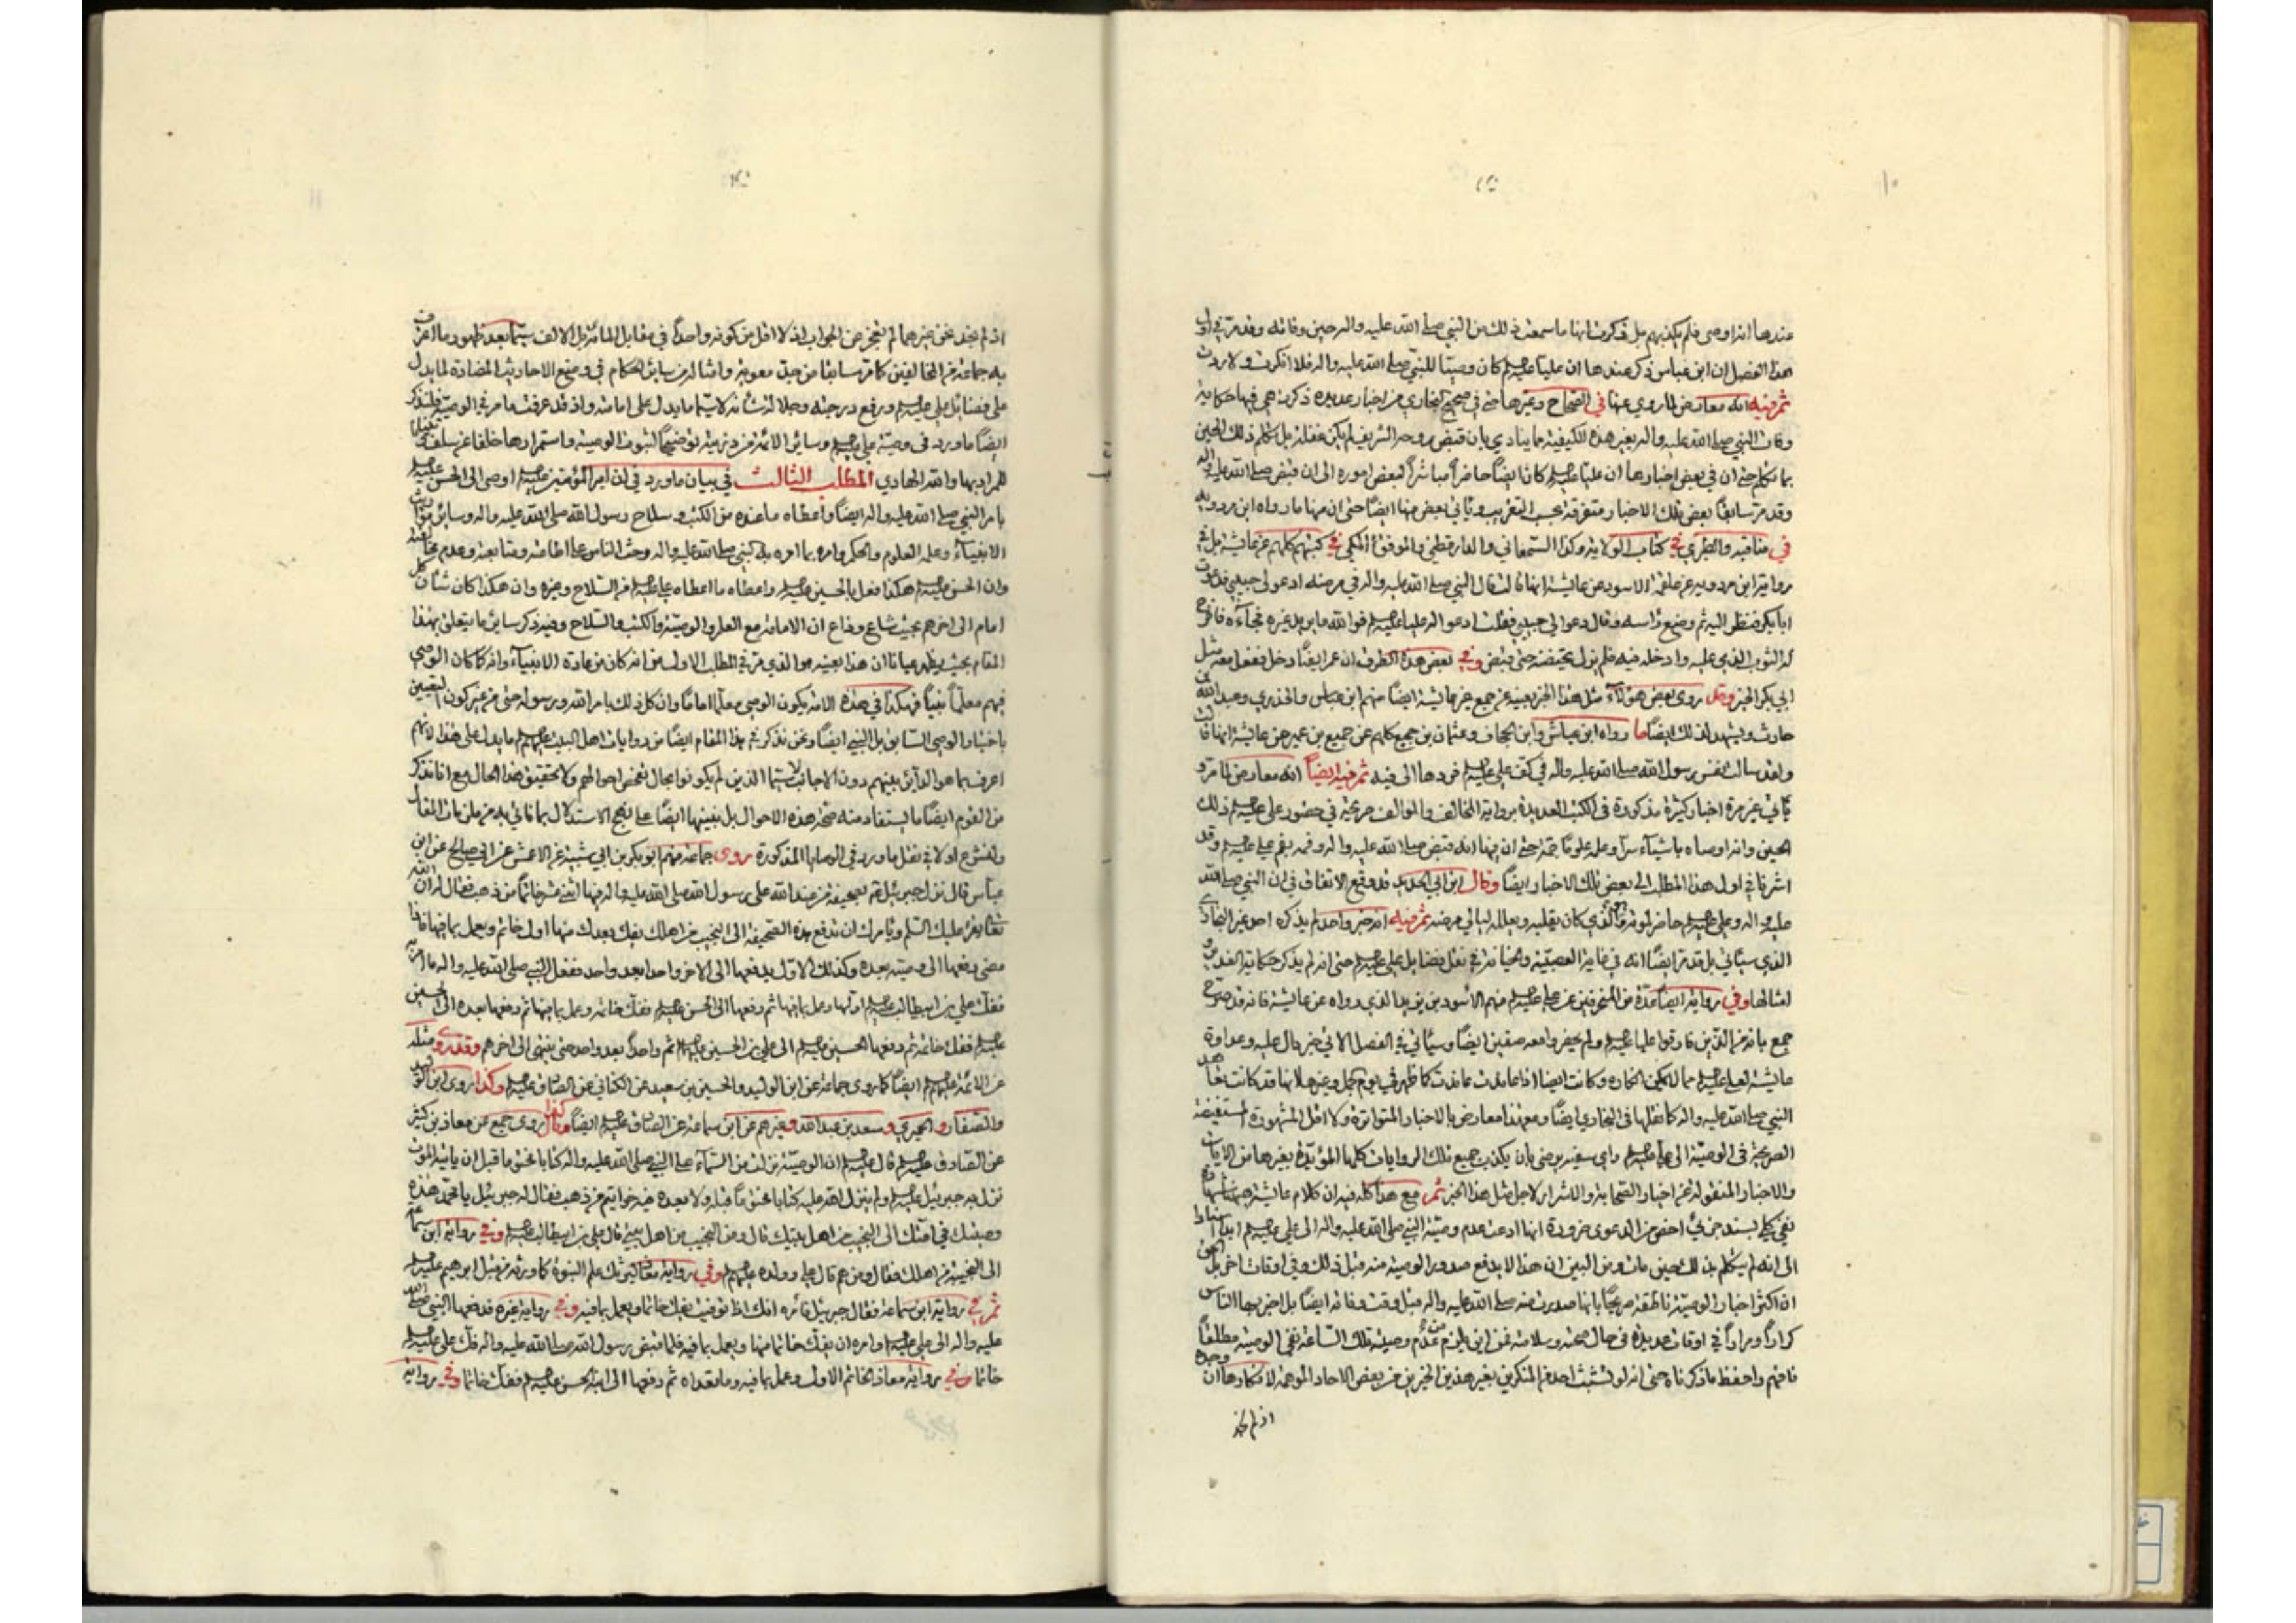 ١٠
عندها انه اوصى فلم يكذبهم بل ذكرت انها ما سمعت ذلك من النبي صلى الله عليه واله حين وفاته وقد مر في اول
هذا الفصل ان ابن عباس ذكر عندها ان عليا عليه السلم كان وصيا للنبي صلى الله عليه واله فلا انكرت ولا ردت
ثم فيه انه معارض لما روي عنها في الصحاح وغيرها حتى في صحيح البخاري من اخبار عديدة ذكرت هي فيها حكاية
وفات النبي صلى الله عليه واله بغير هذه الكيفية مما ينادي بان قبض روحه الشريف لم يكن غفلة بل تكلم ذلك الحين
بما تكلم حتى ان في بعض اخبارها ان عليا عليه السلم كان ايضاً حاضراً مباشراً لبعض اموره الى ان قبض صلى الله عليه واله
وقد مر سابقاً بعض تلك الاخبار متفرقة بحسب التقريب ويأتي بعض منها ايضاً حتى ان منها ما رواه ابن مردويه
في مناقبه والطبري في كتاب الولاية وكذا السمعاني والدارقطني والموفق المكي في كتبهم كلهم عن عايشة بل في
رواية ابن مردويه عن علقمة الاسود عن عايشة انها قالت قال النبي صلى الله عليه واله في مرضه ادعوا لي حبيبي فدعوت
ابا بكر فنظر اليه ثم وضع راسه وقال دعوا لي حبيبي فقلت ادعوا له عليا عليه السلم فوالله ما يريد غيره فجاءه فافرج
له الثوب الذي عليه وادخله فيه فلم يزل يحتضنه حتى قبض وفي بعض هذه الطرق ان عمر ايضاً دخل ففعل معه مثل
ابي بكر الخبر وقد روى بعض هؤلاء مثل هذا الخبر بعينه عن جمع غير عايشة ايضاً منهم ابن عباس والخدري وعبد الله بن
حارث ويشهد لذلك ايضاً ما رواه ابن عياش وابن الجحاف وعثمان بن جميع كلهم عن جميع بن عمير عن عايشة انها قالت
ولقد سالت نفس رسول الله صلى الله عليه واله في كف علي عليه السلم فردها الى فيه ثم فيه ايضاً انه معارض لما مر و
يأتي غير مرة اخبار كثيرة مذكورة في الكتب العديدة برواية المخالف والموالف صريحة في حضور علي عليه السلم ذلك
الحين وانه اوصاه باشياء سراً وعلمه علوماً جمة حتى ان فيها انه قبض صلى الله عليه واله وفمه بفم علي عليه السلم وقد
اشرنا في اول هذا المطلب الى بعض تلك الاخبار ايضاً وقال ابن ابي الحديد قد وقع الاتفاق في ان النبي صلى الله
عليه واله وعلي عليه السلم حاضر لموته وهو الذي كان يقلبه ويعالله ليالي مرضه ثم فيه انه خبر واحد لم يذكره احد غير البخاري
الذي سيأتي بل قد مر ايضاً انه في غاية العصبية والخيانة في نقل فضايل علي عليه السلم حتى انه لم يذكر حكاية الغدير و
امثالها وفي رواية ايضاً عدة من المنحرفين عن علي عليه السلم منهم الاسود بن يزيد الذي رواه عن عايشة فانه قد صرح
جمع بانه من الذين فارقوا عليا عليه السلم ولم يحضروا معه صفين ايضاً وسيأتي في الفصل الاتي خبر حال عليه وعداوة
عايشة لعلي عليه السلم مما لا يمكن انكاره وكانت ايضا اذا عاندت عاندت كما ظهر في يوم الجمل وغيره لانها قد كانت تعاند
النبي صلى الله عليه واله كما نقلها في البخاري ايضاً ومع هذا معارض بالاخبار المتواترة ولا اقل المشهورة المستفيضة
الصريحة في الوصية الى علي عليه السلم واي سفيه يرضى بان يكذب جميع تلك الروايات كلها المؤيدة بغيرها من الايات
والاخبار المنقولة عن اخيار الصحابة والاشرار لاجل مثل هذا الخبر ثم مع هذا كله فيه ان كلام عايشة هيهنا شهادة
نفي كلي بسند جزئي اخص من الدعوى ضرورة انها ادعت عدم وصية النبي صلى الله عليه واله الى علي عليه السلم ابداً استنادا
الى انه لم يتكلم بذلك حين مات ومن البين ان هذا لا يدفع صدور الوصية منه قبل ذلك وفي اوقات اخر بل الحق
ان اكثر اخبار الوصية ناطقة صريحاً بانها صدرت منه صلى الله عليه واله قبل وقت وفاته ايضاً بل اخبر بها الناس
كراراً ومراراً في اوقات عديدة في حال صحته وسلامته فمن اين يلزم من عدم وصيته تلك الساعة نفي الوصية مطلقاً
فافهم واحفظ ما ذكرناه حتى انه لو تشبث احد من المنكرين بغير هذين الخبرين من بعض الاحاد الموهمة لانكارها ان وجده
اذ لم نجد
اذ لم نجد نحن غيرهما لم نعجز عن الجواب اذ لا اقل من كونه واحداً في مقابل المائة بل الالف سيما بعد ظهور ما اعترف
به جماعة من المخالفين كما مر سابقا من حيث معوية وامثاله من سائر الحكام في وضع الاحاديث المضادة لما يدل
على فضايل علي عليه السلم ورفع درجته وجلالة شأنه لا سيما ما يدل على امامته واذ قد عرفت ما مر في الوصية فلنذكر
ايضاً ما ورد في وصية علي عليه السلم وسائر الائمة من ذريته توضيحاً لثبوت الوصية واستمرارها خلفا عن سلف
للمراد بها والله الهادي المطلب الثالث في بيان ما ورد في ان امير المؤمنين عليه السلم اوصى الى الحسن عليه السلم
بامر النبي صلى الله عليه واله ايضاً واعطاه ما عنده من الكتب وسلاح رسول الله صلى الله عليه واله وسائر مواريث
الانبياء وعلمه العلوم والحكم وامره بما امره به النبي صلى الله عليه واله وحث الناس على اطاعته ومتابعته وعدم مخالفته
وان الحسن عليه السلم هكذا فعل بالحسين عليه السلم واعطاه ما اعطاه علي عليه السلم من السلاح وغيره وان هكذا كان شأن كل
امام الى اخرهم بحيث شاع وذاع ان الامامة مع العلم والوصية والكتب والسلاح وفيه ذكر سائر ما يتعلق بهذا
المقام بحيث يظهر عيانا ان هذا بعينه هو الذي مر في المطلب الاول من انه كان من عادة الانبياء وانه كما كان الوصي
فيهم معلماً نبياً فهكذا في هذه الامة يكون الوصي معلما اماما وان كل ذلك بامر الله ورسوله حتى من غير كون التعيين
باختيار الوصي السابق بل النبي ايضاً ونحن نذكر في هذا المقام ايضا من روايات اهل البيت عليهم السلم ما يدل على هذا لانهم
اعرف بما هو الدائر بينهم دون الاجانب لا سيما الذين لم يكونوا بحال تفحص احوالهم ولا تحقيق هذا الحال مع انا نذكر
من القوم ايضاً ما يستفاد منه صحة هذه الاحوال بل بعينها ايضاً على نهج الاستدلال بما نأتي به من ملزمات المقال
ولنشرع اولا في نقل ما ورد في الوصايا المذكورة روى جماعة منهم ابو بكر بن ابي شيبة عن الاعمش عن ابي صالح عن ابن
عباس قال نزل جبرئيل عم بصحيفة من عند الله على رسول الله صلى الله عليه واله فيها اثنى عشر خاتما من ذهب فقال له ان الله
تعالى يقرء عليك السلم ويأمرك ان تدفع هذه الصحيفة الى النجيب من اهلك يفك بعدك منها اول خاتم ويعمل بما فيها فاذا
مضى دفعها الى وصيه بعده وكذلك الاول يدفعها الى الاخر واحدا بعد واحد ففعل النبي صلى الله عليه واله ما امر به
ففك علي بن ابيطالب عليه السلم اولها وعمل بما فيها ثم دفعها الى الحسن عليه السلم ففك خاتمه وعمل بما فيها ثم دفعها بعده الى الحسين
عليه السلم ففك خاتمه ثم دفعها الحسين عليه السلم الى علي بن الحسين عليه السلم ثم واحداً بعد واحد حتى ينتهي الى اخرهم وقد روى مثله
عن الائمة عليهم السلم ايضاً كما روى جماعة عن ابن الوليد والحسين بن سعيد عن الكناني عن الصادق عليه السلم وكذا روى ابن الوليد
والصفار والحميري وسعد بن عبد الله وغيرهم عن ابن سماعة عن الصادق عليه السلم ايضاً وكذا روى جمع عن معاذ بن كثير
عن الصادق عليه السلم قال عليه السلم ان الوصية نزلت من السماء على النبي صلى الله عليه واله كتابا مختوما قبل ان يأتيه الموت
نزل به جبرئيل عليه السلم ولم ينزل الله عليه كتابا مختوماً قبله ولا بعده فيه خواتيم من ذهب فقال له جبرئيل يا محمد هذه
وصيتك في امتك الى النجيب من اهل بيتك قال ومن النجيب من اهل بيتي قال علي بن ابيطالب عليه السلم وفي رواية ابن سماعة
الى النجيب من اهلك فقال ومن هم قال علي وولده عليهم السلم وفي رواية معاذ ليرثك علم النبوة كما ورثه من قبل ابرهيم عليه السلم
ثم في رواية ابن سماعة فقال جبرئيل فأمره انك اذا توفيت يفك خاتما ويعمل بما فيه وفي رواية غيره فدفعها النبي صلى الله
عليه واله الى علي عليه السلم وامره ان يفك خاتما منها ويعمل بما فيه فلما قبض رسول الله صلى الله عليه واله فك علي عليه السلم
خاتما وفي رواية معاذ الخاتم الاول وعمل بما فيه وما تعداه ثم دفعها الى ابنه الحسن عليه السلم ففك خاتما وفي رواية